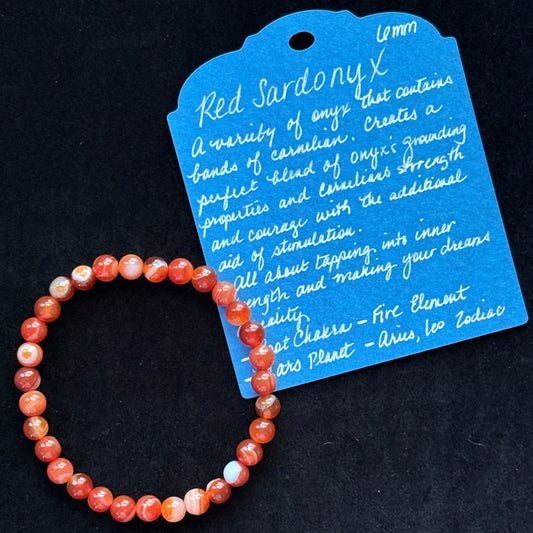 6mm
Red Sardonyx
A variety of onyx that contains
bands of carnelian. Creates a
perfect blend of onyx's grounding
properties and carnelians strength
and courage with the additional
aid of stimulation.
All about tapping into inner
ength and making your dreams
eality
oot Chakra - Fire Element
ars Planet - Aries, Leo Zodiac